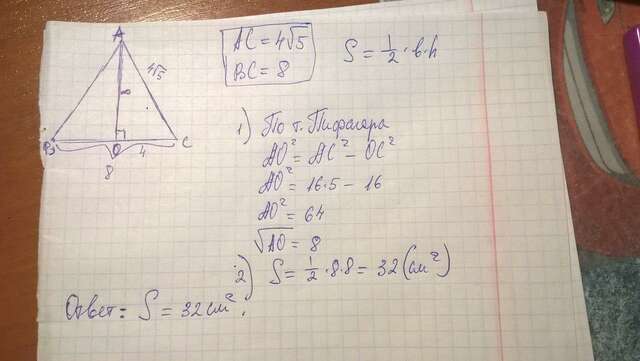 A
4√5
8
B
O
4
C
8
AC = 4√5
BC = 8
S = 1/2 · b · h
1) По т. Пифагора
AO² = AC² − OC²
AO² = 16·5 − 16
AO² = 64
√AO = 8
2) S = 1/2 · 8 · 8 = 32 (см²)
Ответ: S = 32 см².